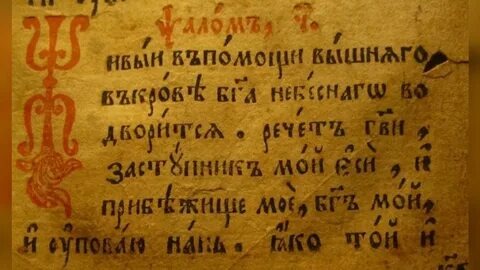 Ѱало́мъ, ч҃.
Живы́и въпо́мощи вы́шнѧго
въкро́вѣ бг҃а небе́снагѡ во
двори́тсѧ. рече́тъ гв҃и,
засту́пникъ мо́й є҆сѝ, и҆
прибѣ́жище моѐ, бг҃ъ мо́й,
и҆ ᲂу҆пова́ю на́нь. ꙗ҆́кѡ то́й и҆